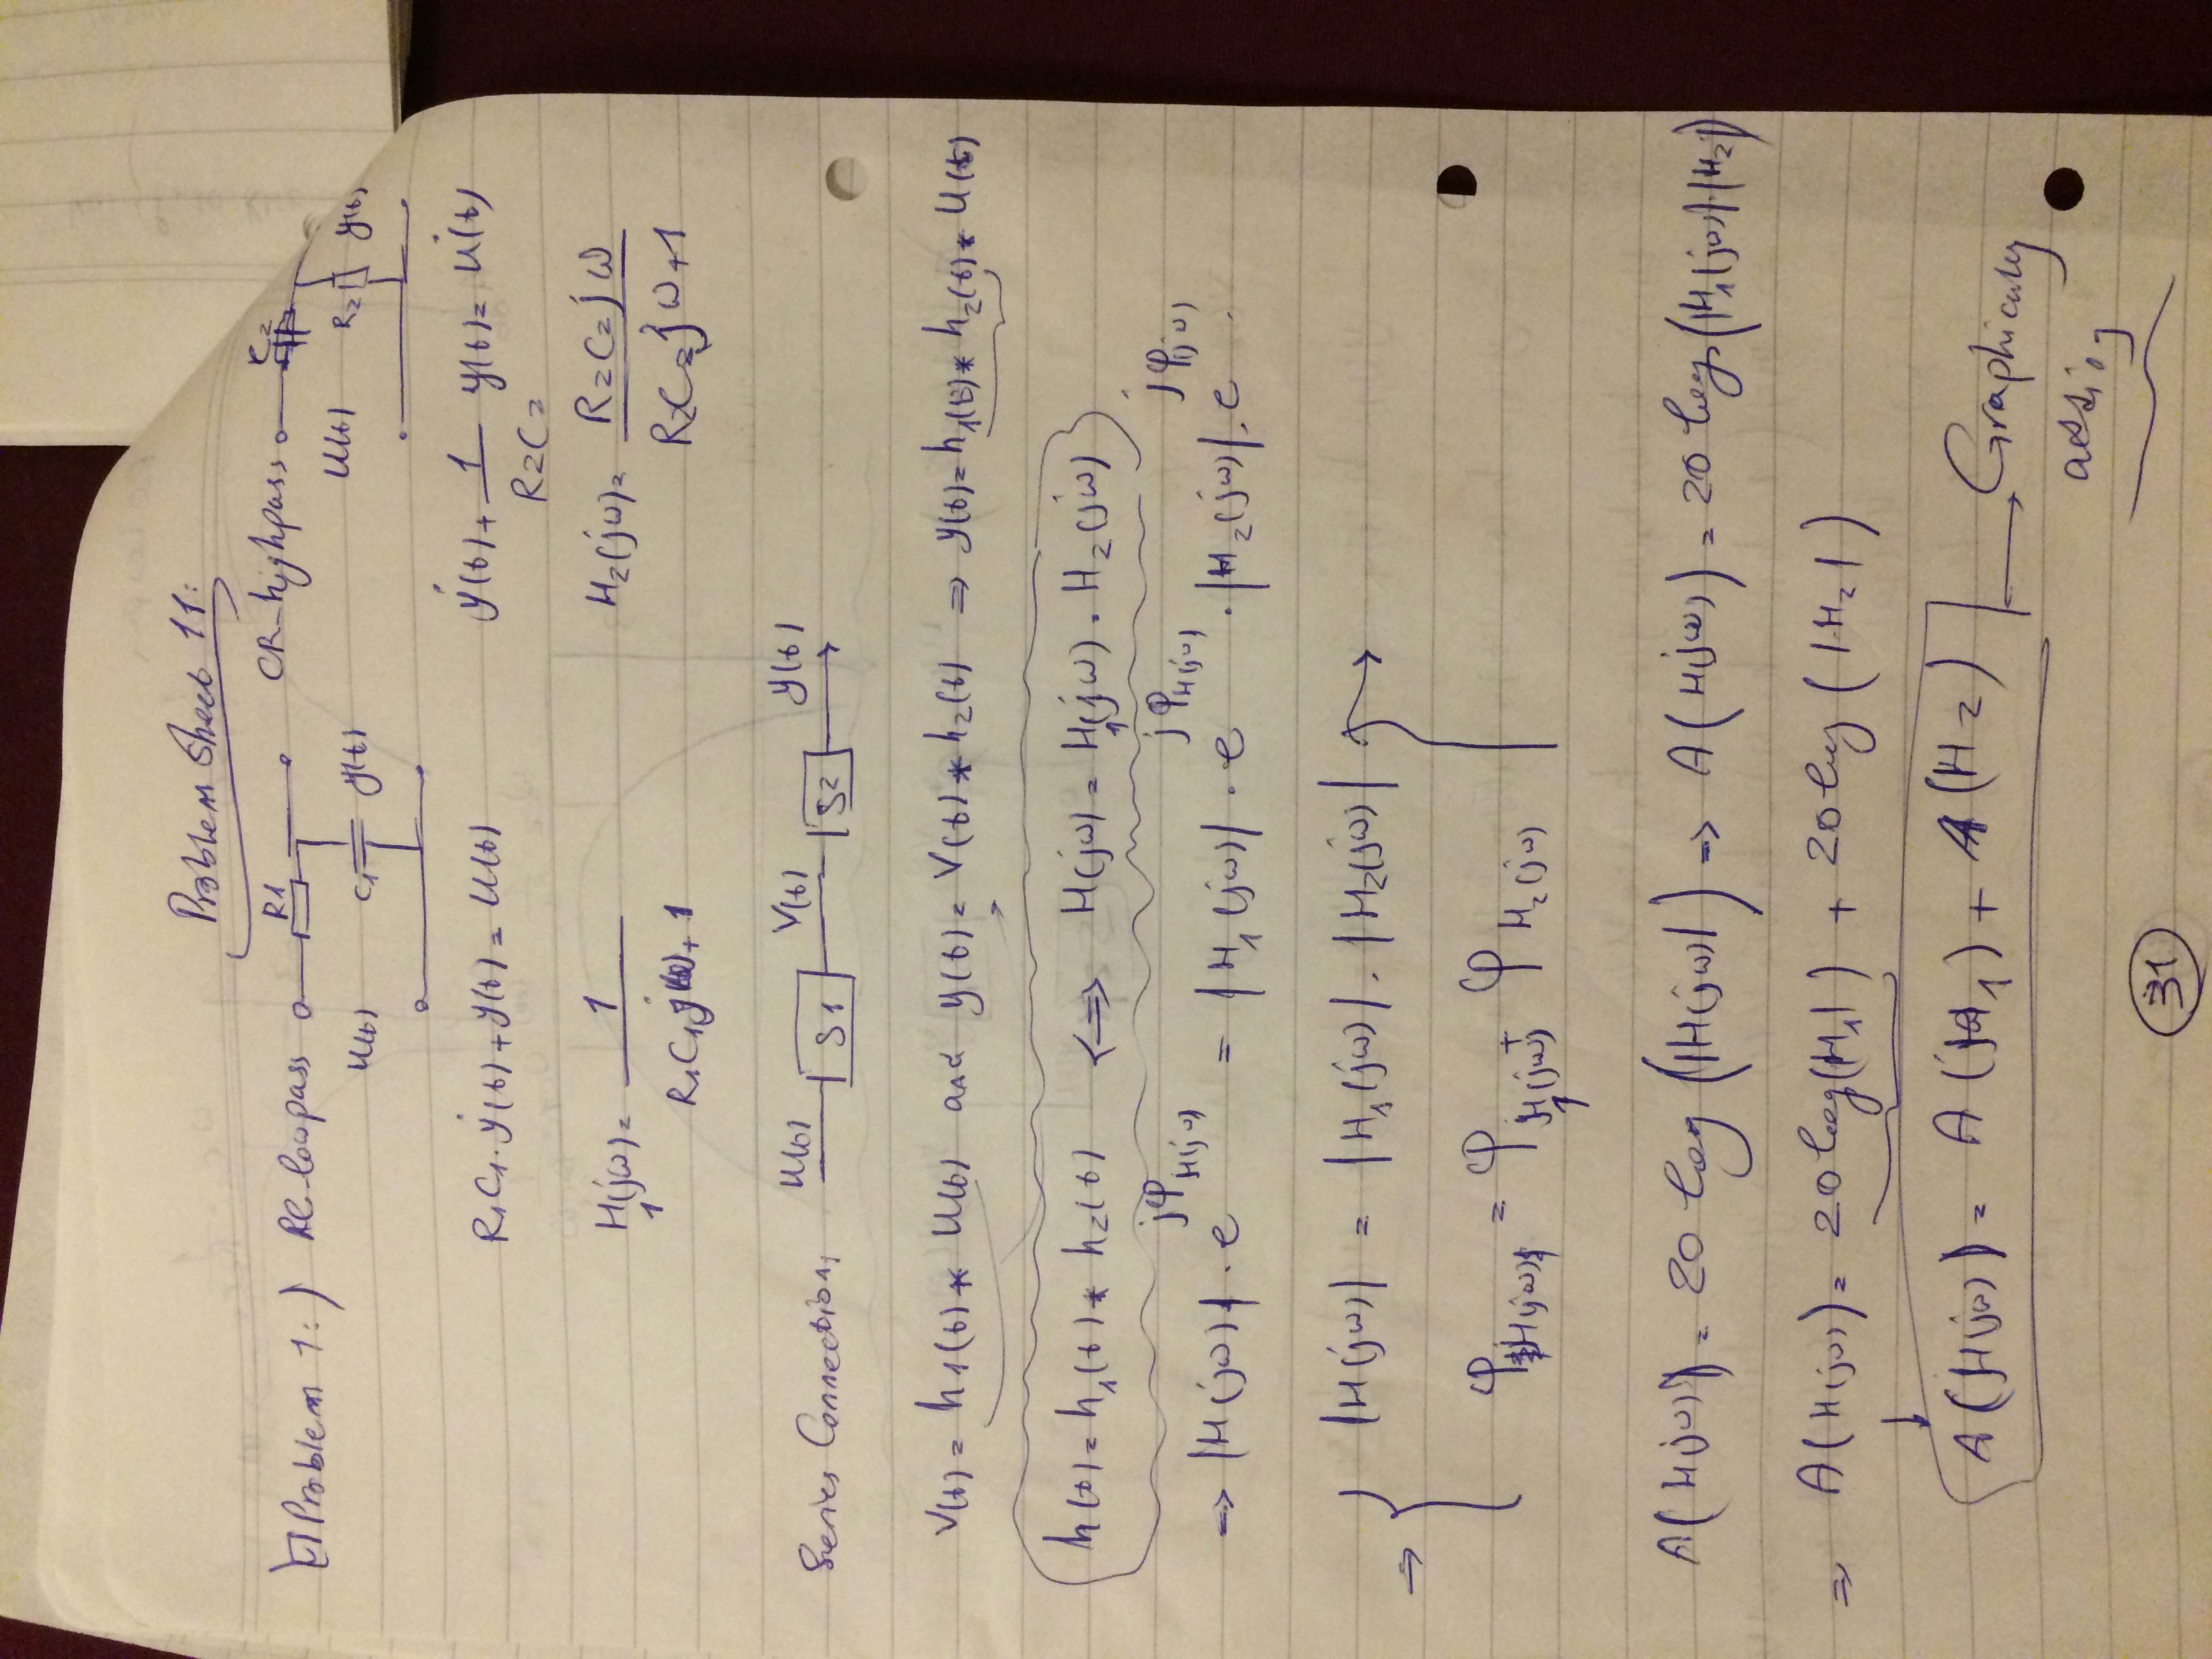 Problem Sheet 11:
Problem 1:) RC-lowpass R1 C1 U(t) y(t) CR-highpass C2 R2 U(t) y(t)
R₁C₁·ẏ(t)+y(t)=U(t)   ẏ(t)+ 1/R2C2 y(t)= u̇(t)
H₁(jω)= 1/(R₁C₁jω+1)   H₂(jω)= R2C2jω/(R2C2jω+1)
Series Connection: U(t) S1 V(t) S2 y(t)
V(t)= h1(t)* U(t) and y(t)= V(t)*h₂(t) ⇒ y(t)=h₁(t)* h₂(t)* U(t)
h(t)=h₁(t)* h₂(t) <=> H(jω)=H₁(jω).H₂(jω)
⇒ |H(jω)|·e^jφ_H(jω) = |H₁(jω)|·e^jφ_H(jω) ·|H₂(jω)|.e^jφ(jω)
|H(jω)| = |H₁(jω)|.|H₂(jω)| →
⇒ {
φ_H(jω) = φ_H₁(jω) + φ_H₂(jω)
A(H(jω)) = 20 log(|H(jω)|) ⇒ A(H(jω)) = 20 log(|H₁(jω)|·|H₂|)
⇒ A(H(jω))= 20log(|H₁|) + 20log(|H₂|)
A(H(jω)) = A(H₁)+A(H2) → Graphically
adding
31